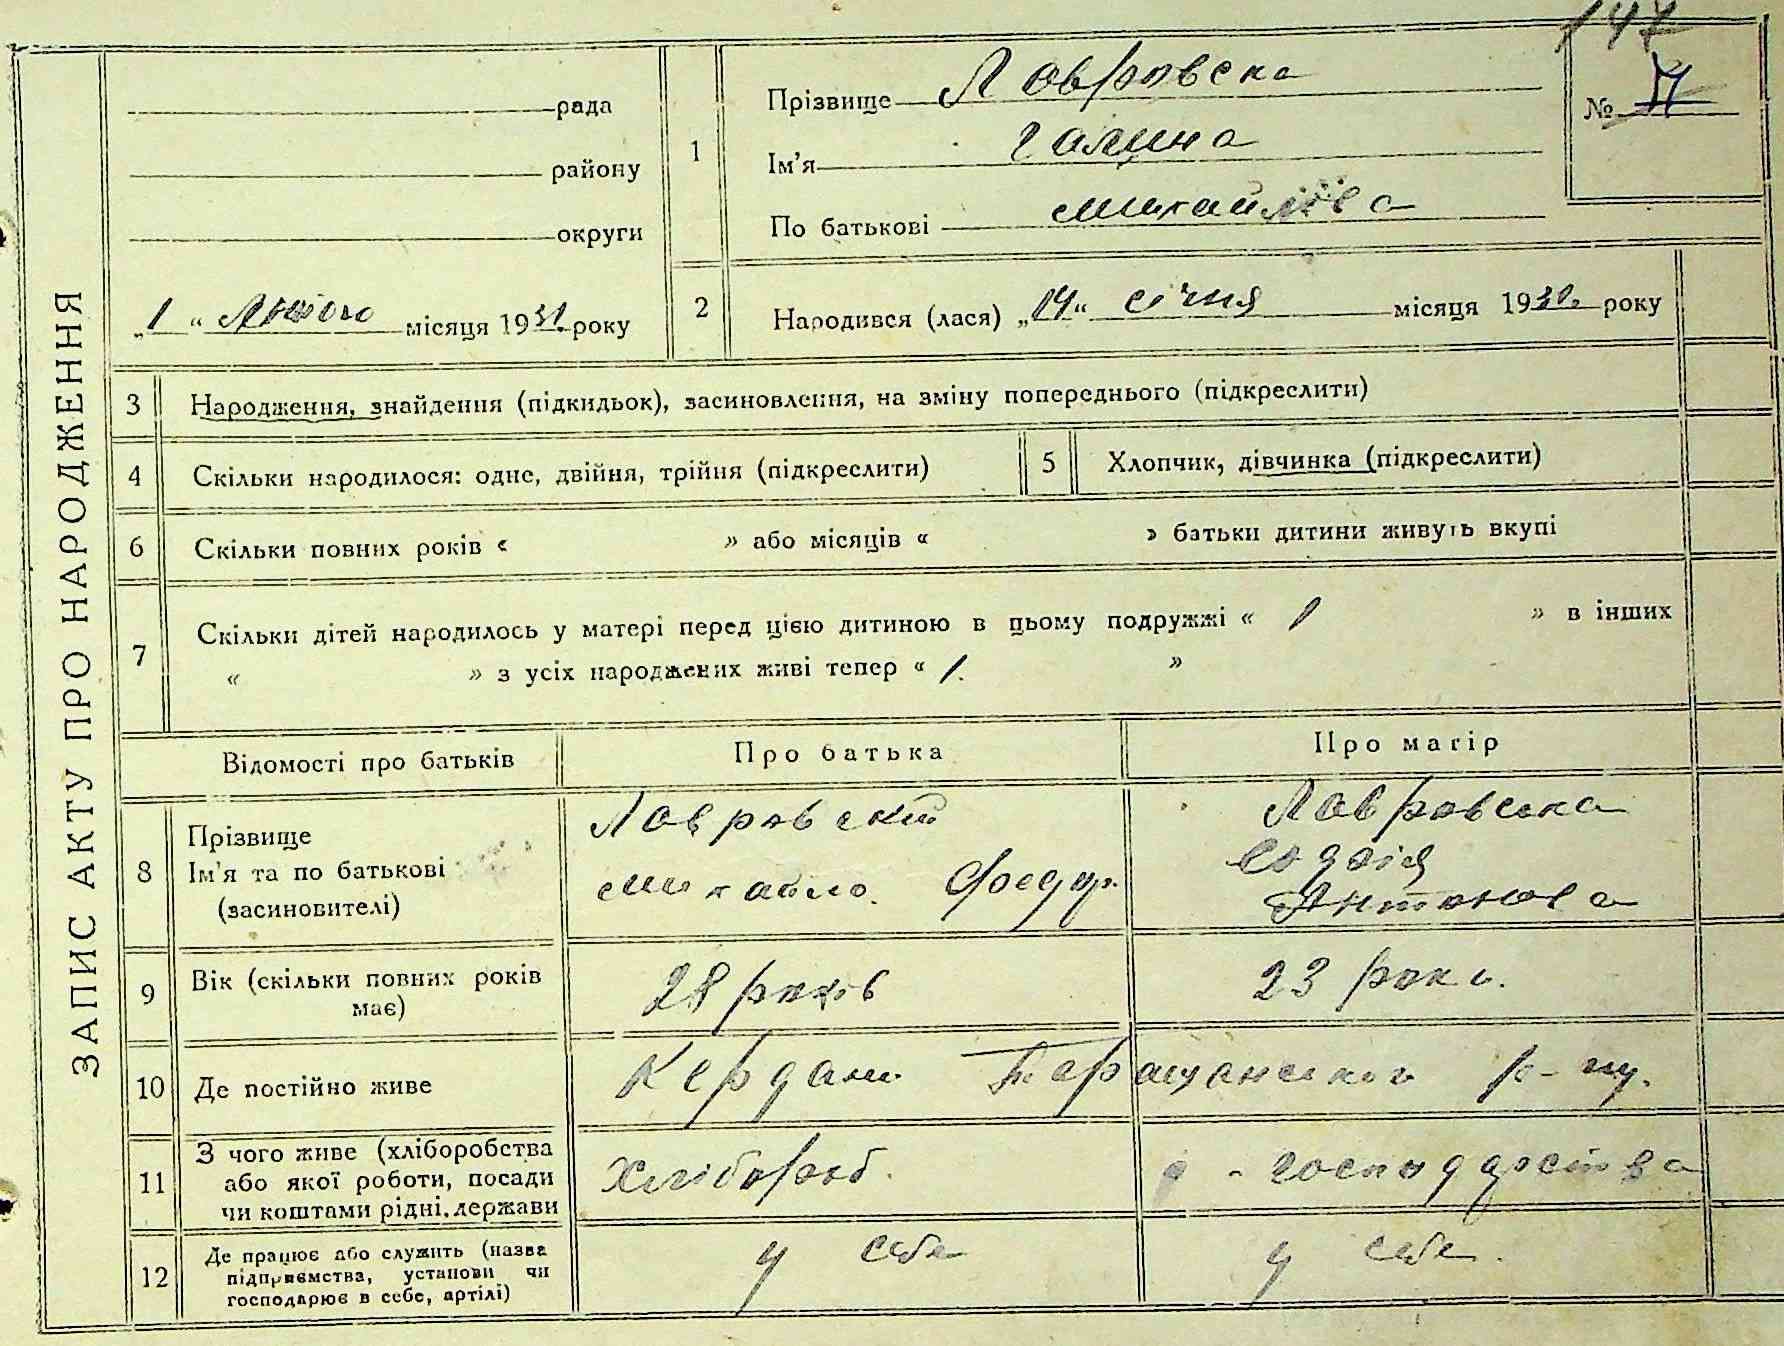 147
ЗАПИС АКТУ ПРО НАРОДЖЕННЯ
рада
району
округи
„1“ Лютого місяця 1931 року
1
Прізвище Лавровска
Ім'я Галина
По батькові Михайлівa
№
2
Народився (лася) „14“ січня місяця 1931. року
3 Народження, знайдення (підкидьок), засиновлення, на зміну попереднього (підкреслити)
4 Скільки народилося: одне, двійня, трійня (підкреслити)
5 Хлопчик, дівчинка (підкреслити)
6 Скільки повних років « » або місяців « » батьки дитини живуть вкупі
7 Скільки дітей народилось у матері перед цією дитиною в цьому подружжі « 1 » в інших
« » з усіх народжених живі тепер « 1. »
Відомості про батьків
Про батька
Про матір
8
Прізвище
Ім'я та по батькові
(засиновителі)
Лавровский
Михайло. Федор.
Лавровська
Антонова
9
Вік (скільки повних років
має)
28 років
23 роки.
10 Де постійно живе
Кердани Таращанського р-ну.
11
З чого живе (хліборобства
або якої роботи, посади
чи коштами рідні, держави
Хлібороб.
д - господарства
12
Де працює або служить (назва
підприємства, установи чи
господарює в себе, артілі)
у себе
у себе.